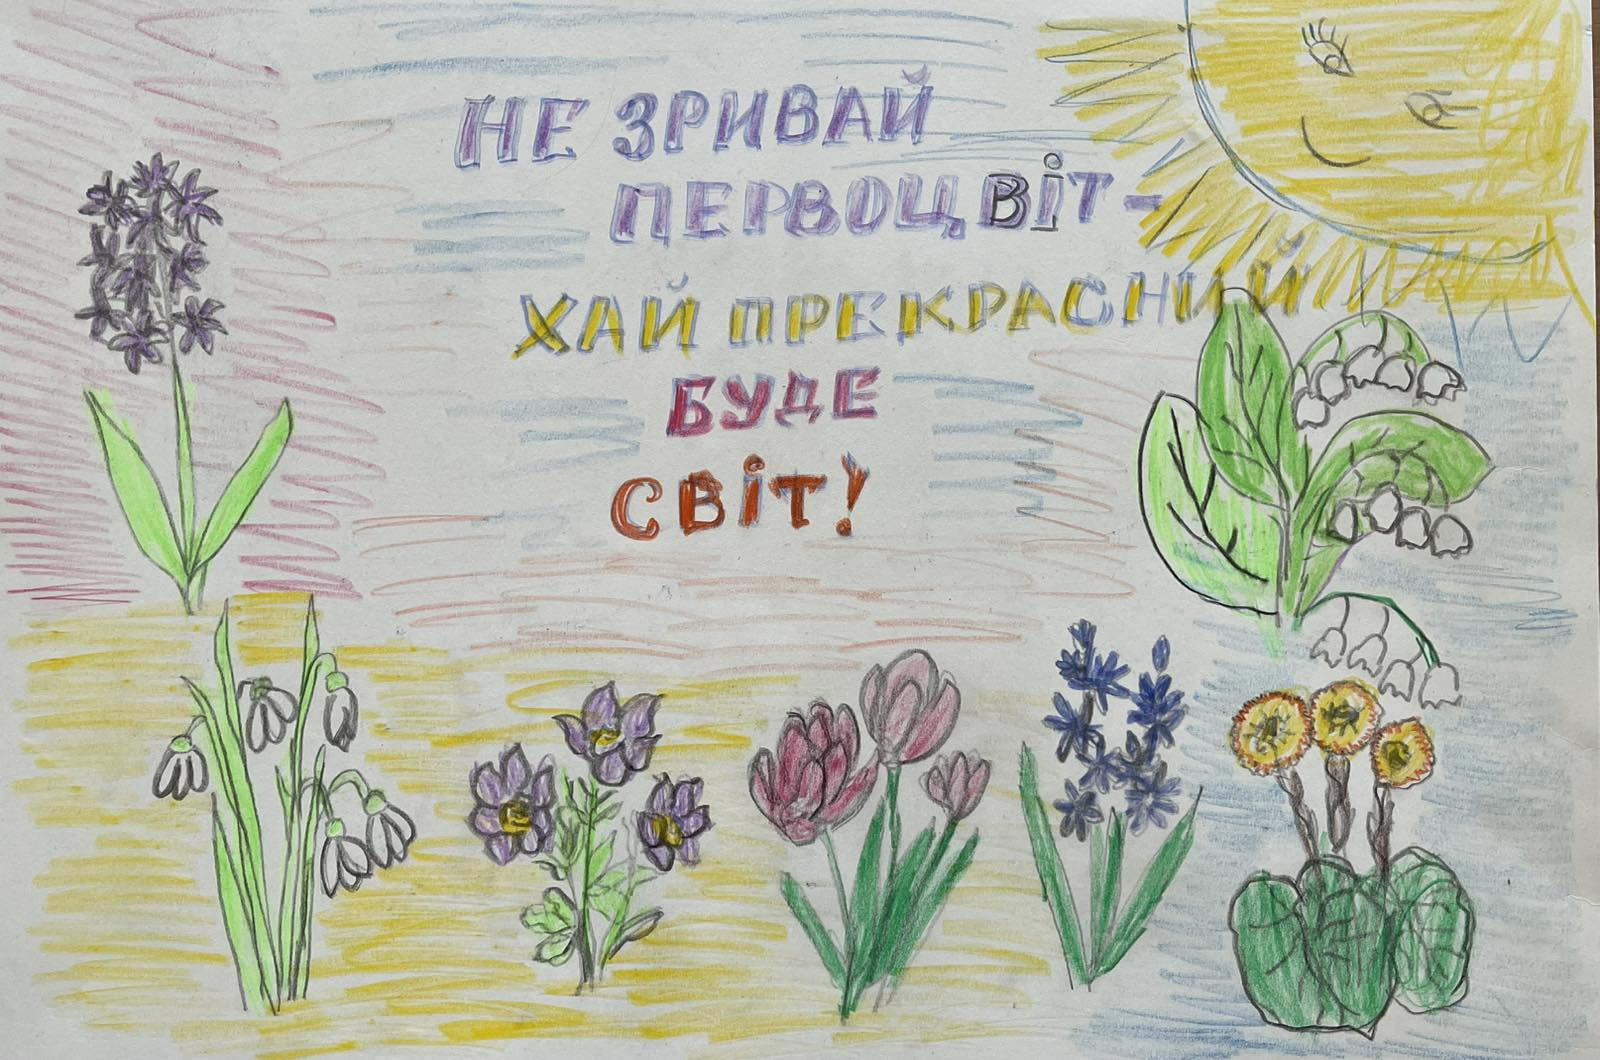 НЕ ЗРИВАЙ
ПЕРВОЦВІТ-
ХАЙ ПРЕКРАСНИЙ
БУДЕ
СВІТ!